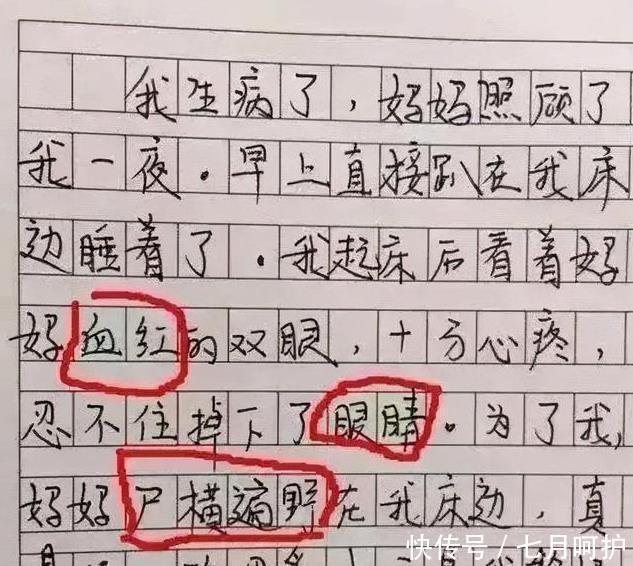 我生病了，妈妈照顾了
我一夜．早上直接趴在我床
边睡着了．我起床后看着妈
妈血红的双眼，十分心疼，
忍不住掉下了眼睛。为了我，
妈妈尸横遍野在我床边，真
快传号／七月呵护